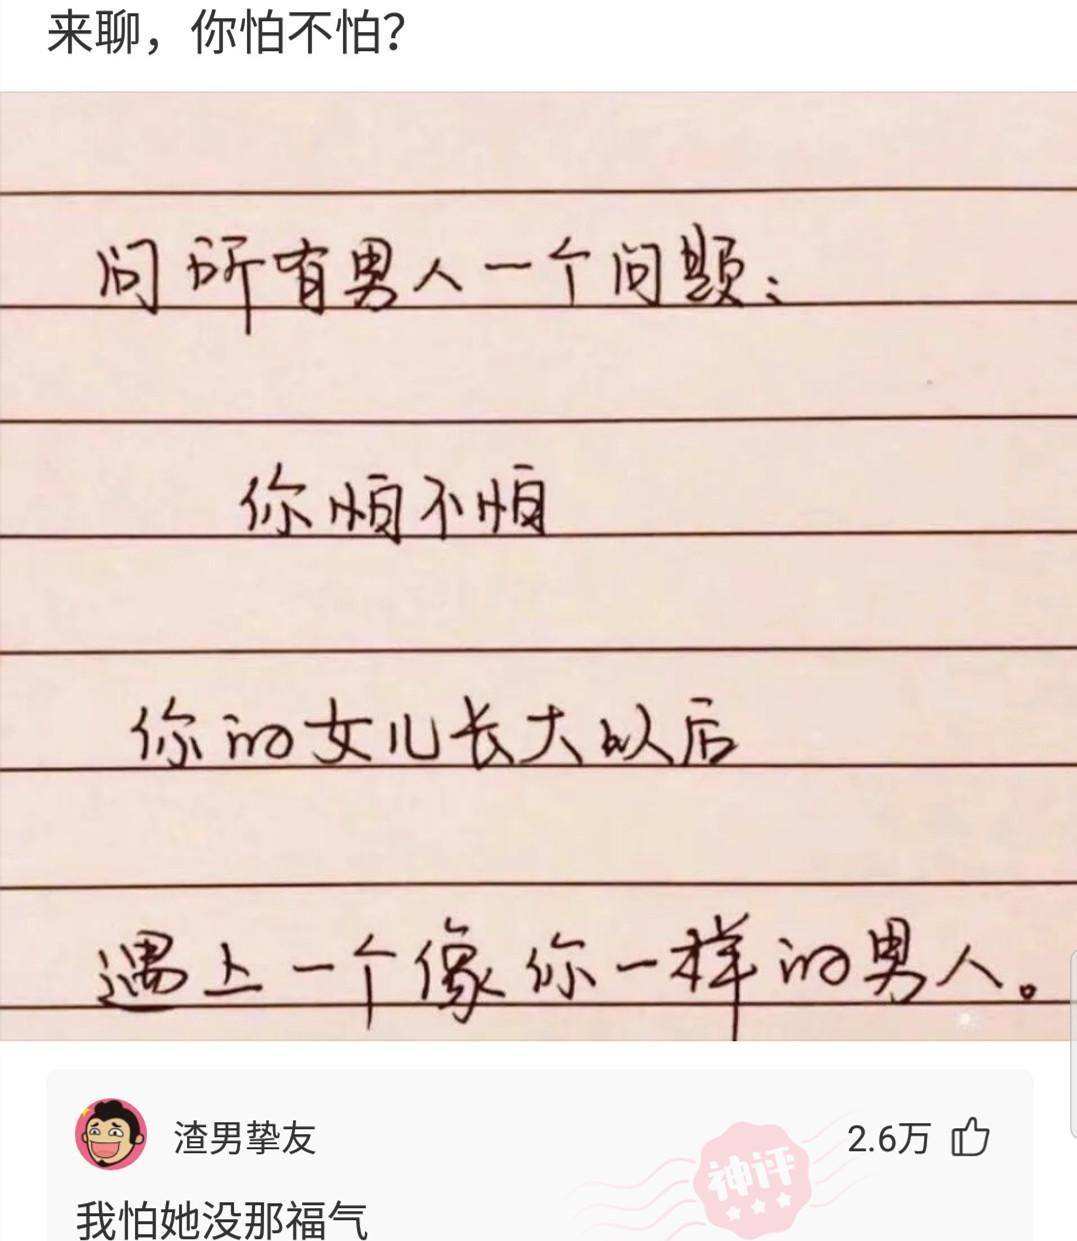 来聊，你怕不怕？
问所有男人一个问题：
你怕不怕
你的女儿长大以后
遇上一个像你一样的男人。
渣男挚友
2.6万
神评
我怕她没那福气